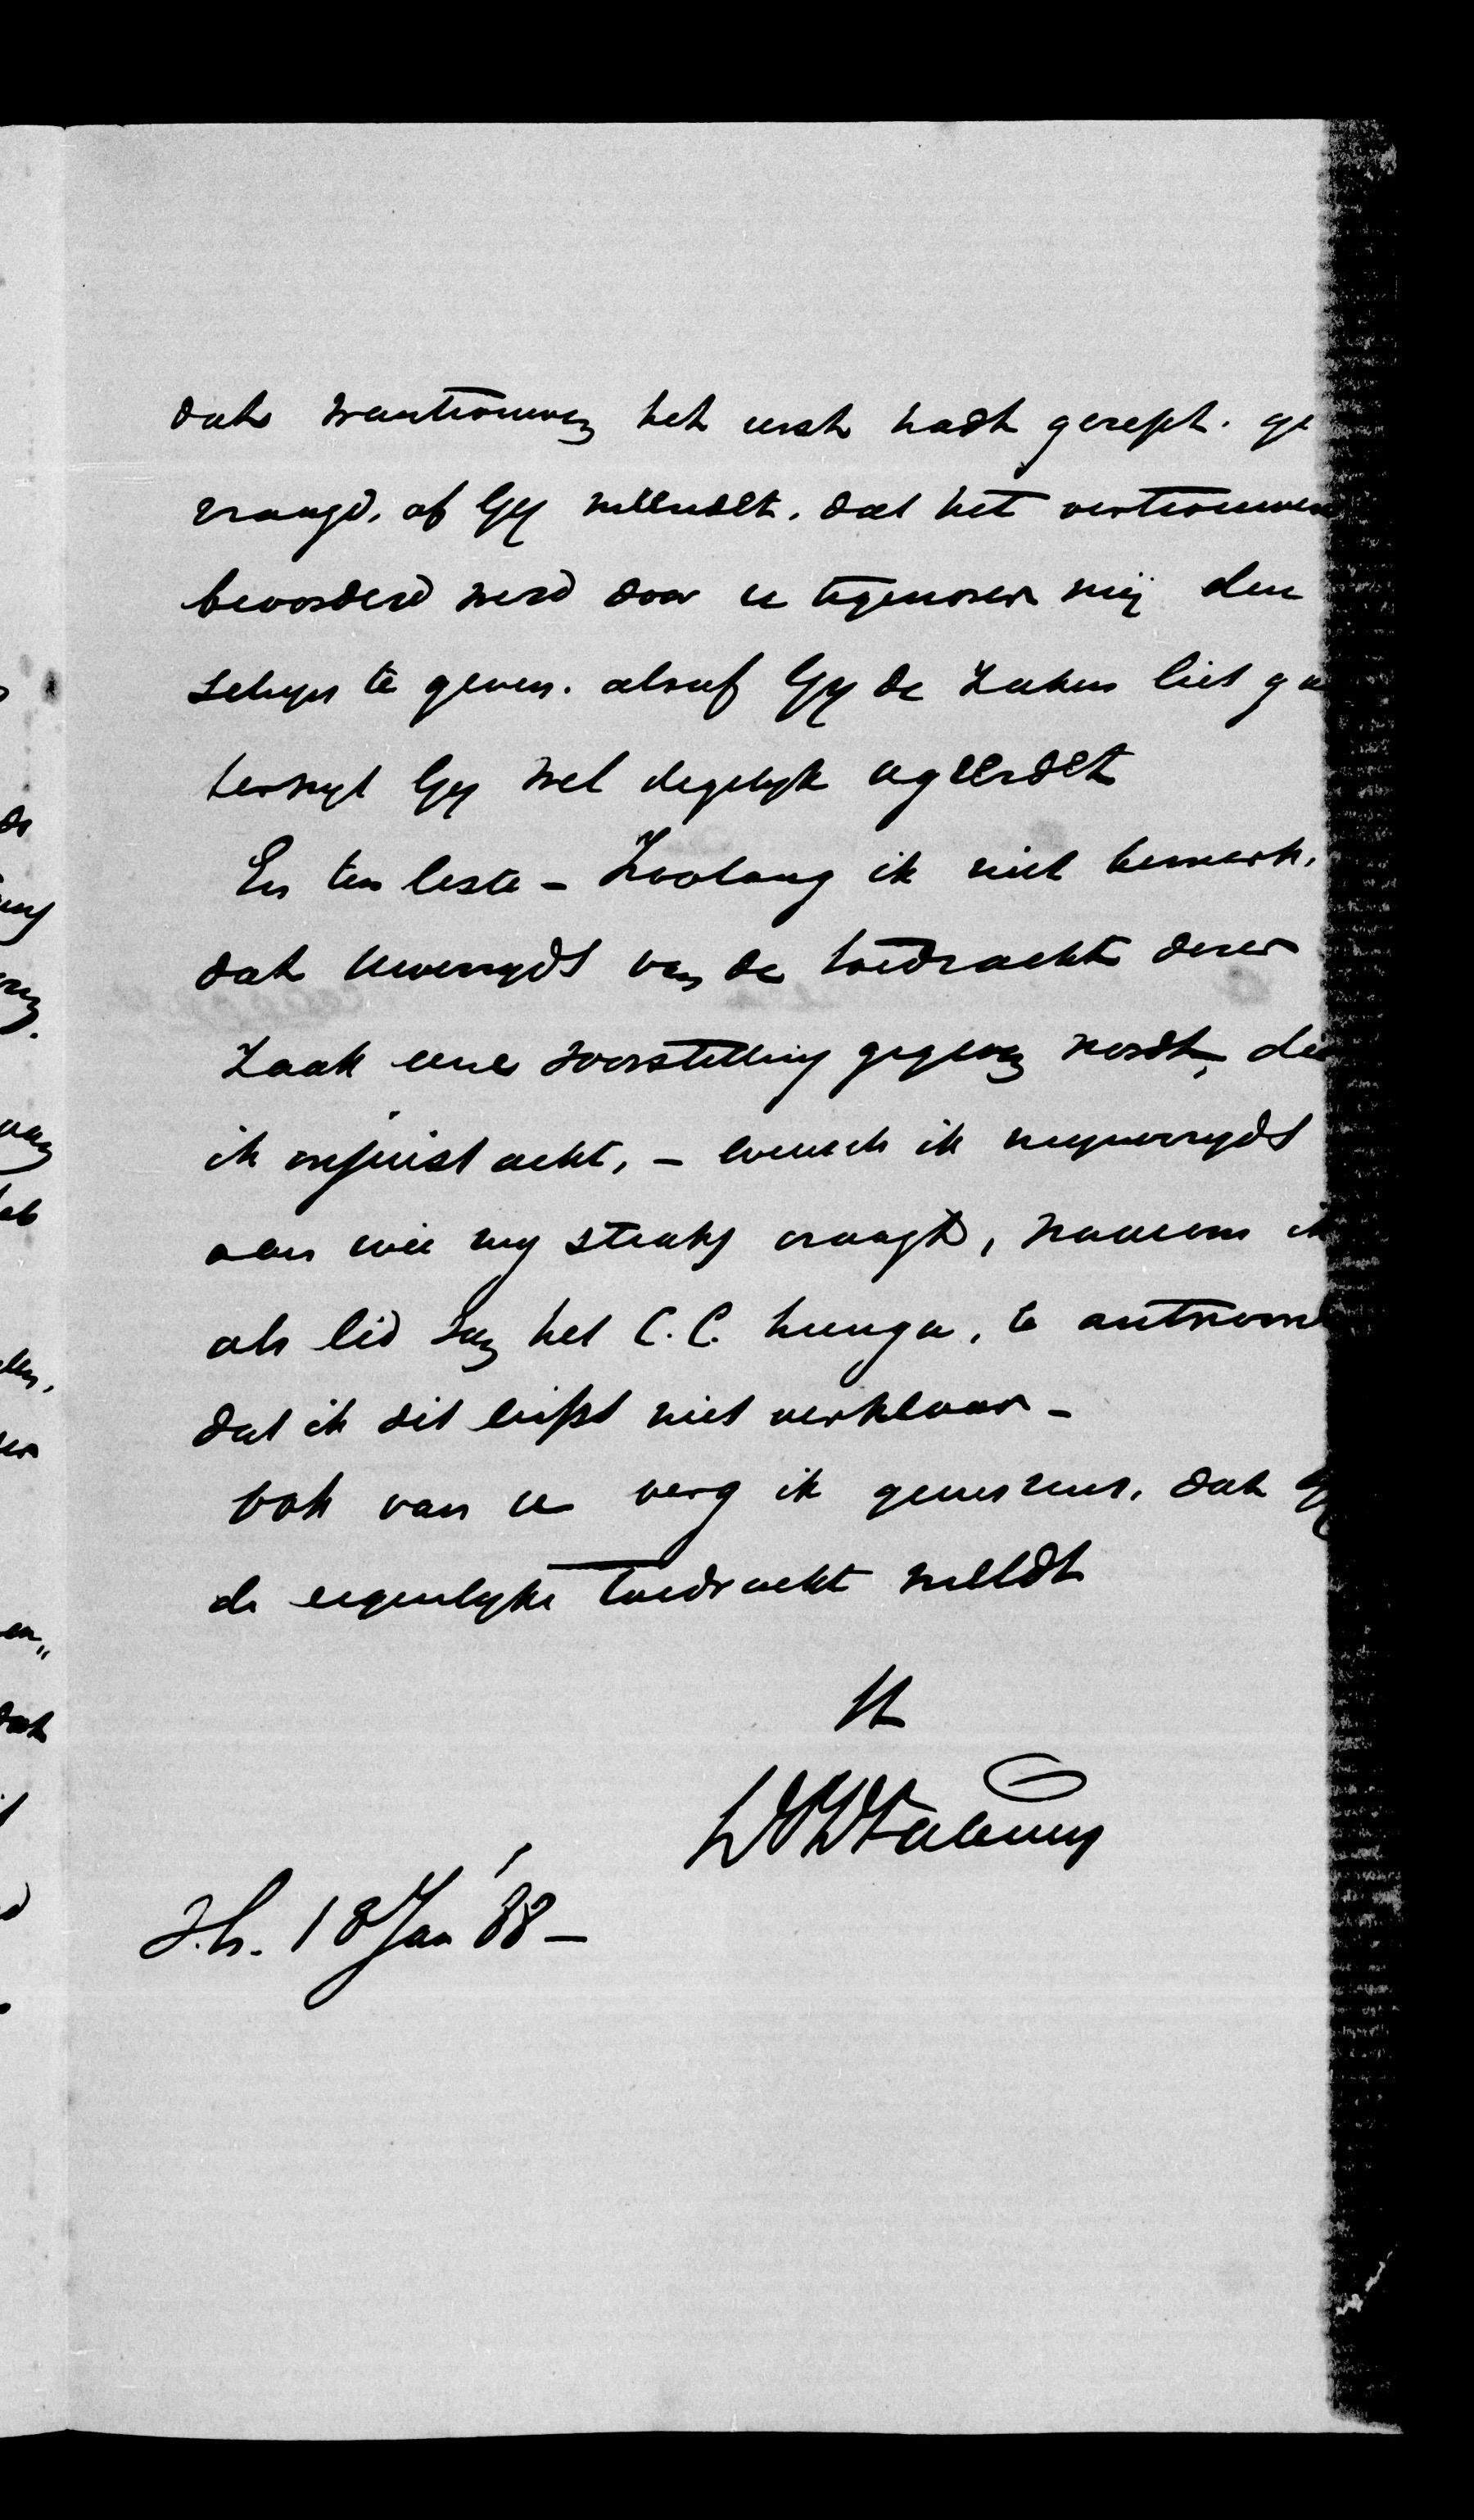 dat wantrouwen het eerst hadt gerept. ge
vraagd, of Gij meendet, dat het vertrouwen
bevorderd werd door u tegenover mij den
schijn te geven. alsof Gij de zaken liet ga
terwijl Gij wel degelijk ageerdet
En ten leste – Zoolang ik niet bemerk,
dat uwerzijds van de toedracht dezer
Zaak eene voorstelling gegeven wordt, die
ik onjuist acht, – wensch ik mijnerzijds
aan wie mij straks vraagt, waarom ik
als lid van het C.C. , te antwoord
dat ik dit liefst niet verklaar –
Ook van u verg ik geenszins, dat Gij
de eigenlijke toedracht meldt
tt
d.h. 18 Jan '88 –